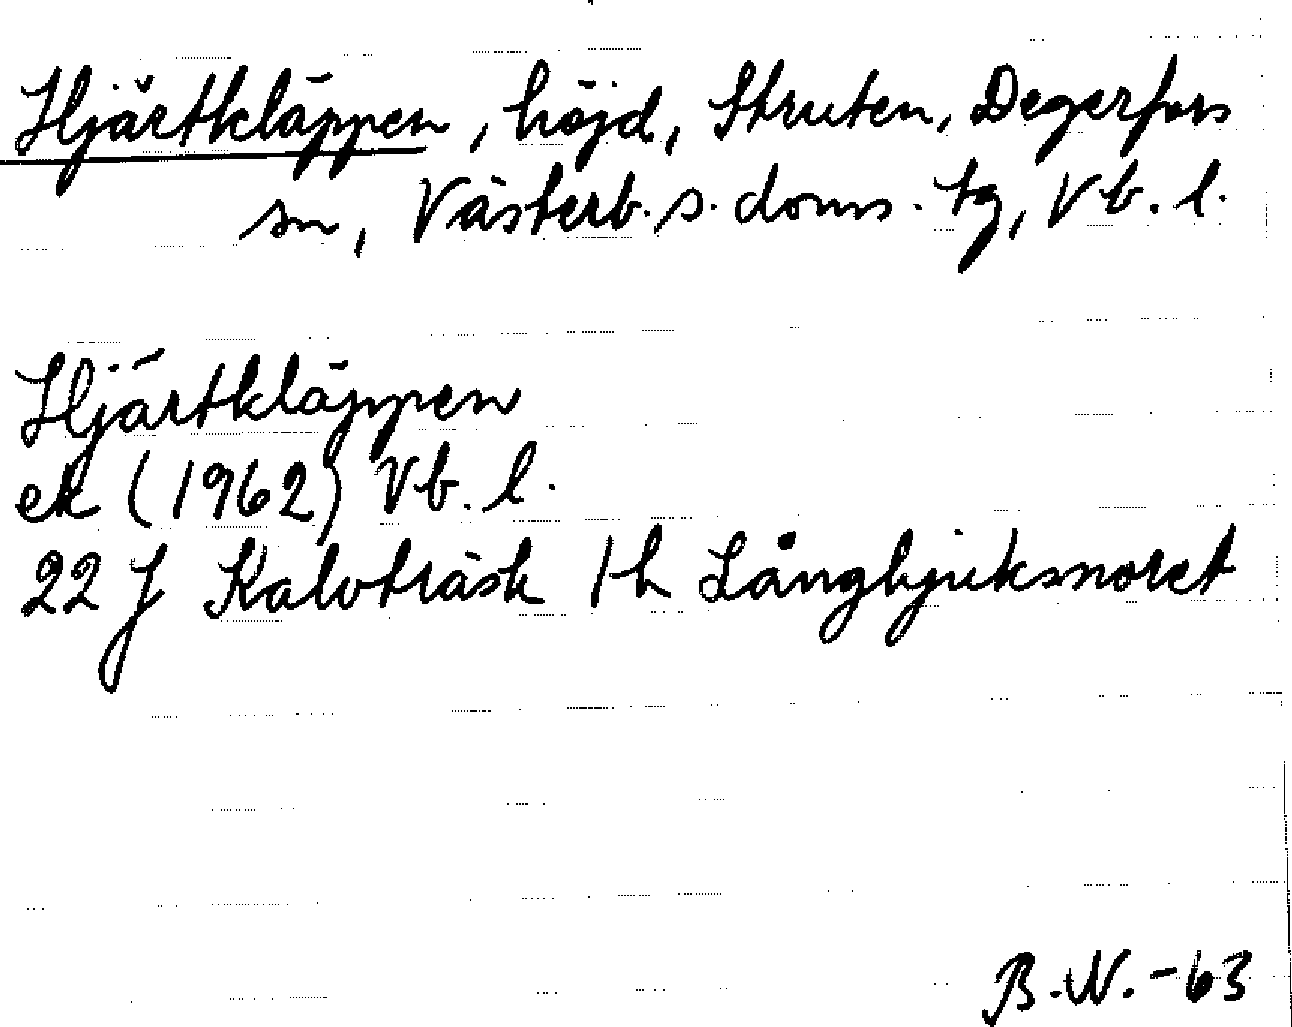 Hjärtkläppen, höjd, Struten, Degerfors
sn, Västerb. s. doms. tg, Vb. l.
Hjärtkläppen
ek (1962) Vb. l.
22 J Kalvträsk 1h Långbjuksnoret
B.N. -63